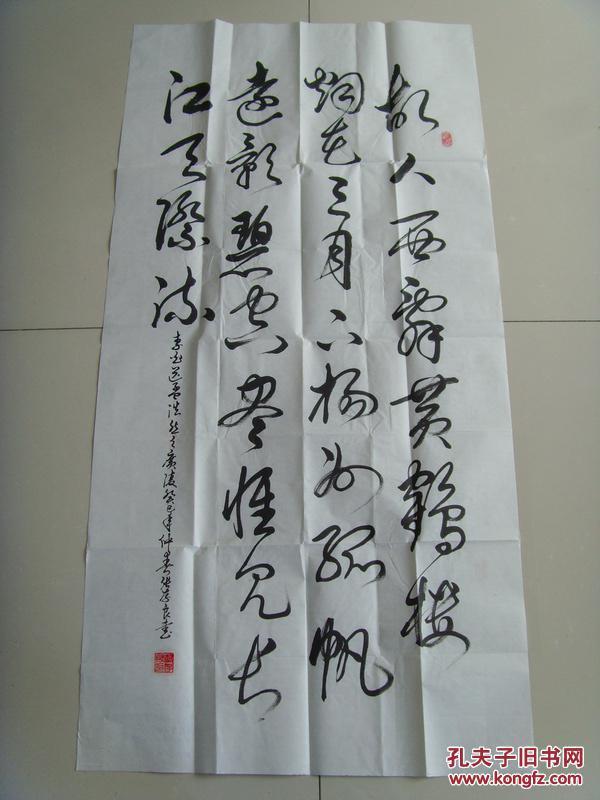 故人西辭黄鶴楼
烟花三月下揚州孤帆
遠影碧空尽惟見長
江天際流
李白送孟浩然之廣陵癸巳年仲春
孔夫子旧书网
www.kongfz.com